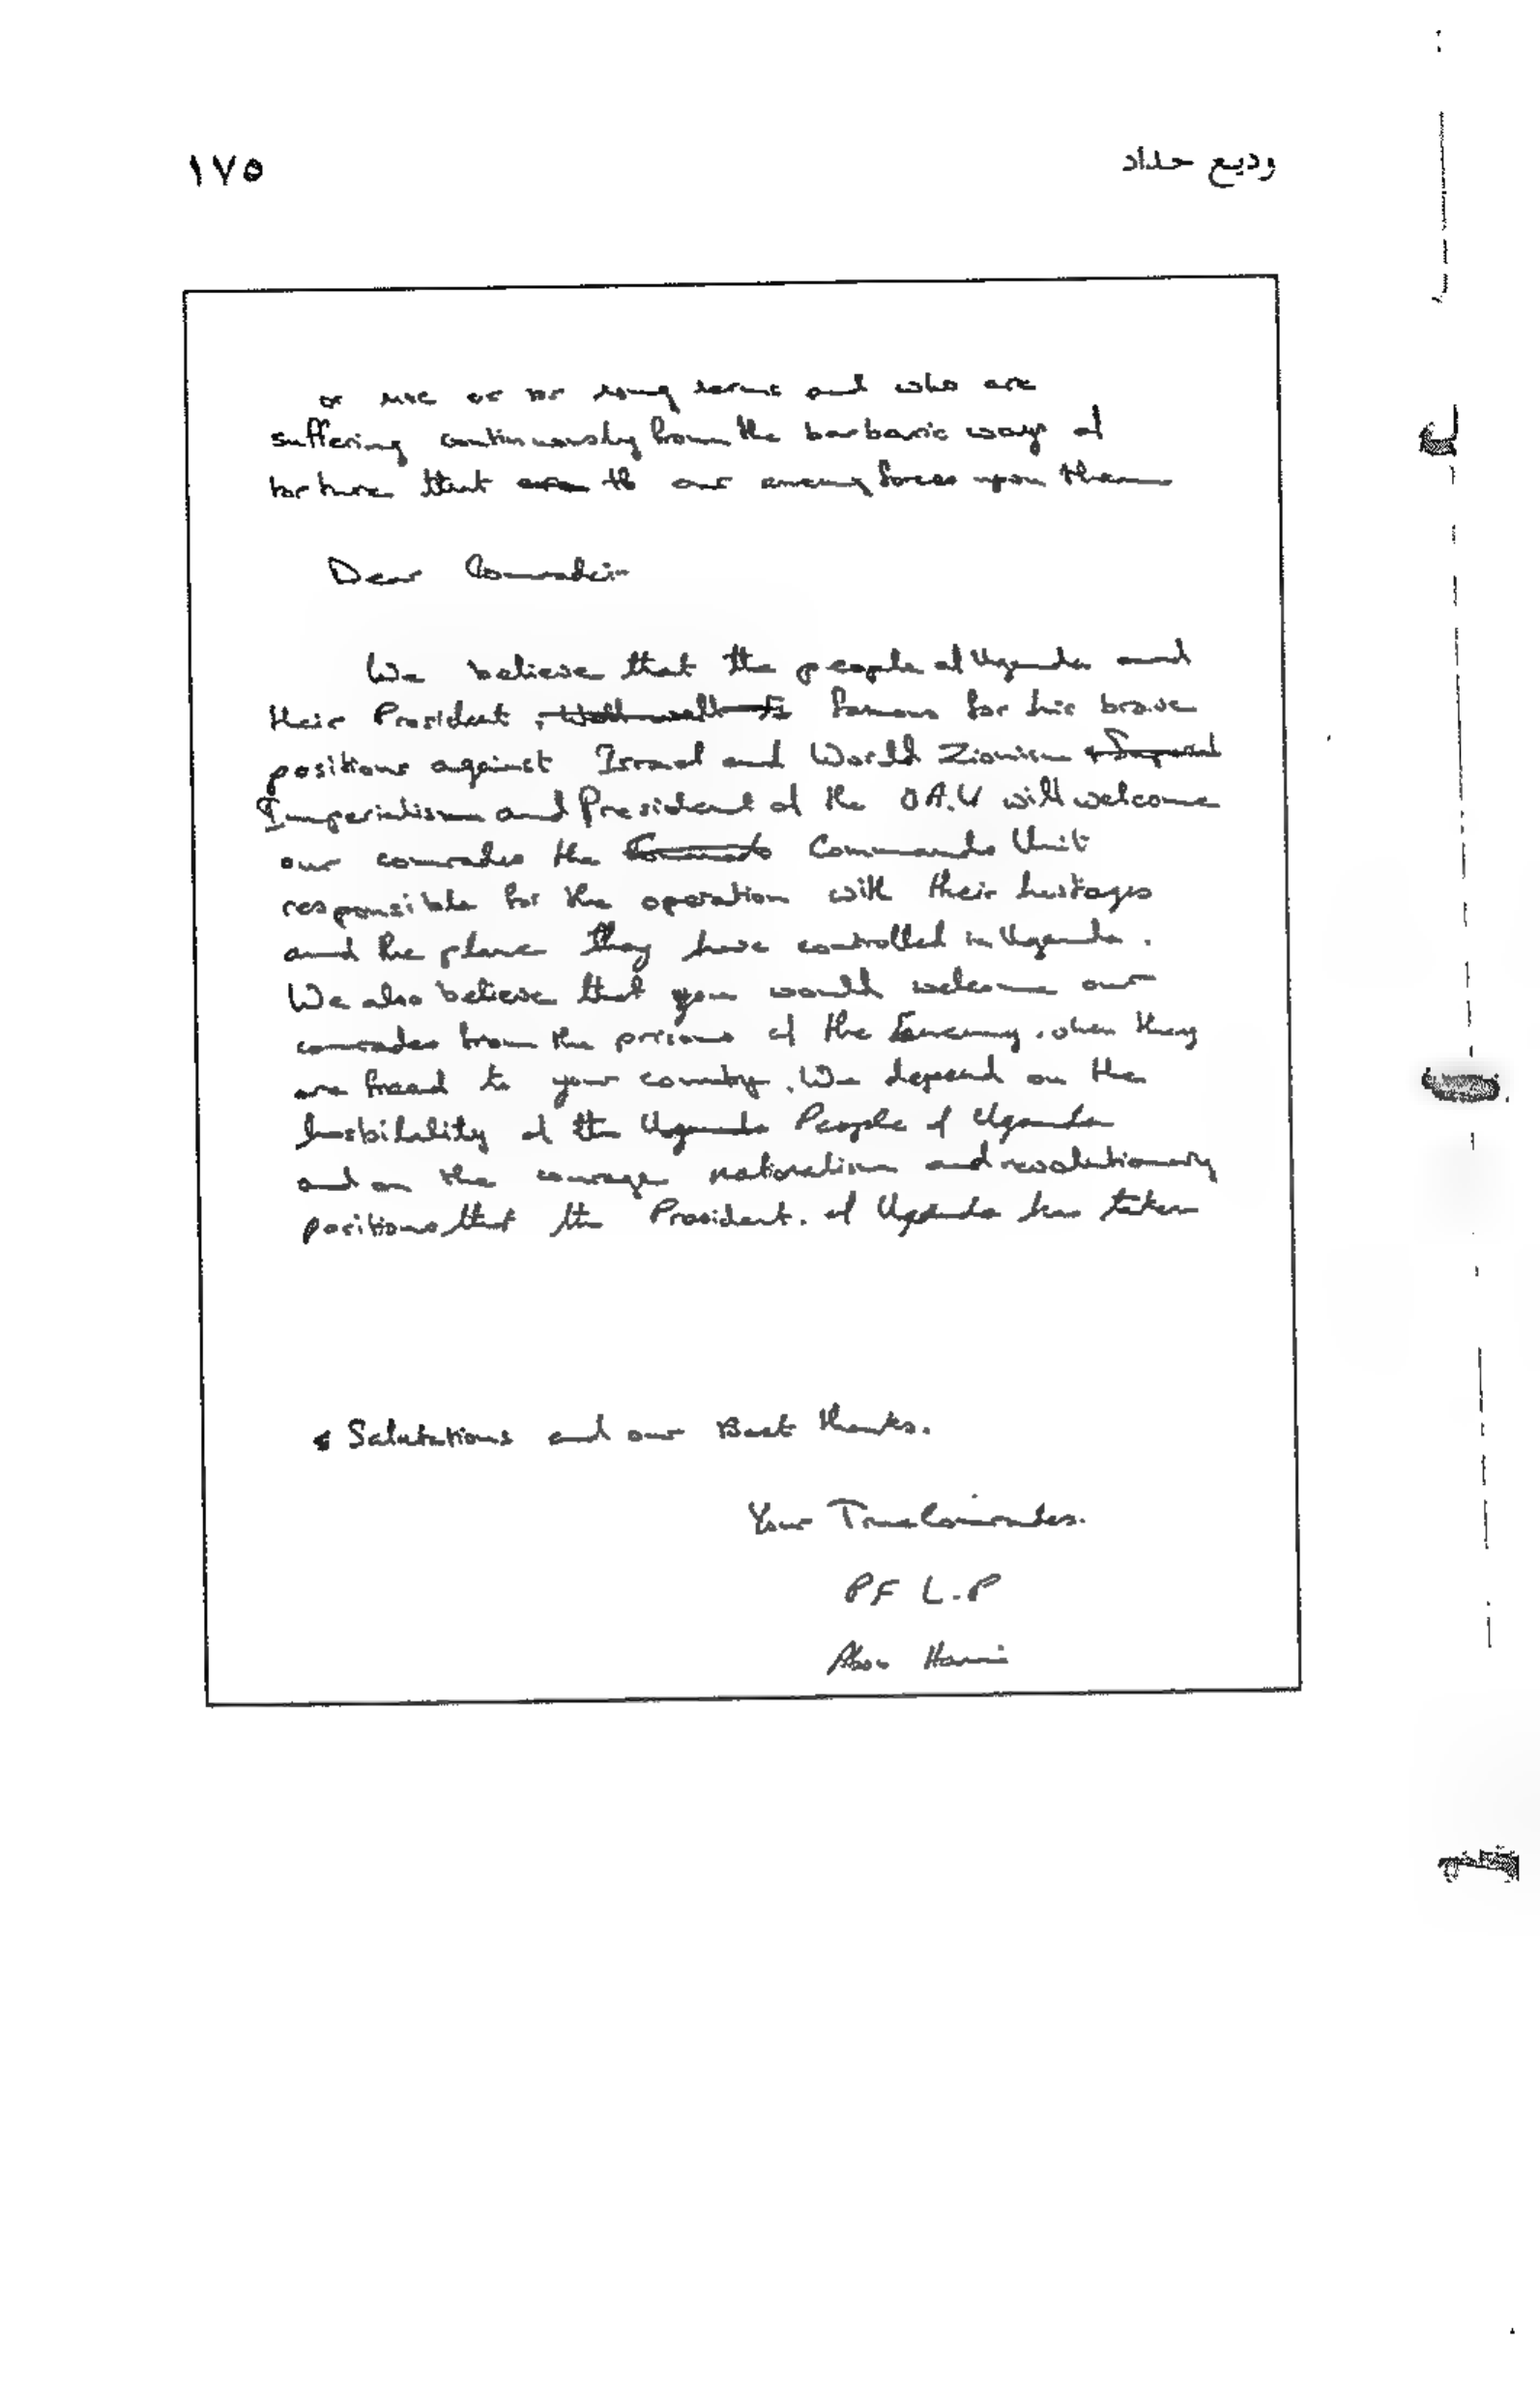 وديع حداد
١٧٥
or for long terms and who are
suffering continuously from the barbaric ways of
torture that our enemy forces upon them
Dear Comrade:
We believe that the people of Uganda and
their President, famous for his brave
positions against Israel and World Zionism
Imperialism and President of the O A.U will welcome
our comrades the Commando Unit
responsible for the operation with their hostages
and the plane they have controlled in Uganda.
We also believe that you would welcome our
comrades from the prisons of the enemy. when they
are freed to your country. We depend on the
hosbitality of the Uganda People of Uganda
and on the courage nationalism and revolutionary
positions that the President. of Uganda has taken
Salutations and our Best thanks.
Your True Comrades.
P F L.P
Abou Hani